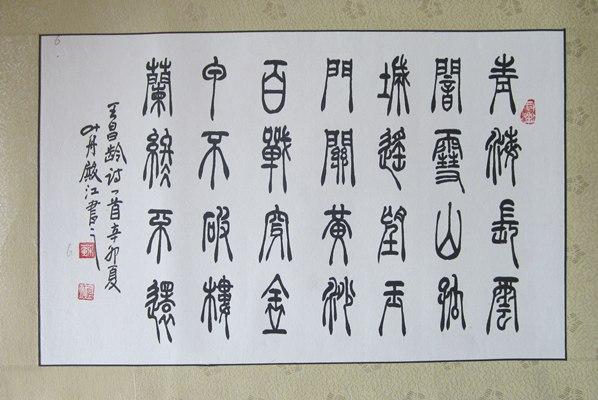 青海長雲
闇雪山孤
城遙望玉
門關黃沙
百戰穿金
甲不破樓
蘭終不還
王昌龄诗一首辛卯夏
江書